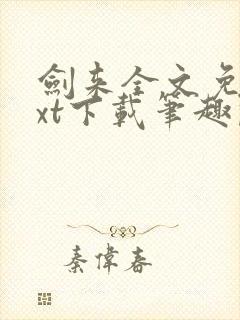 劍来全文免
xt下載筆趣
秦偉春